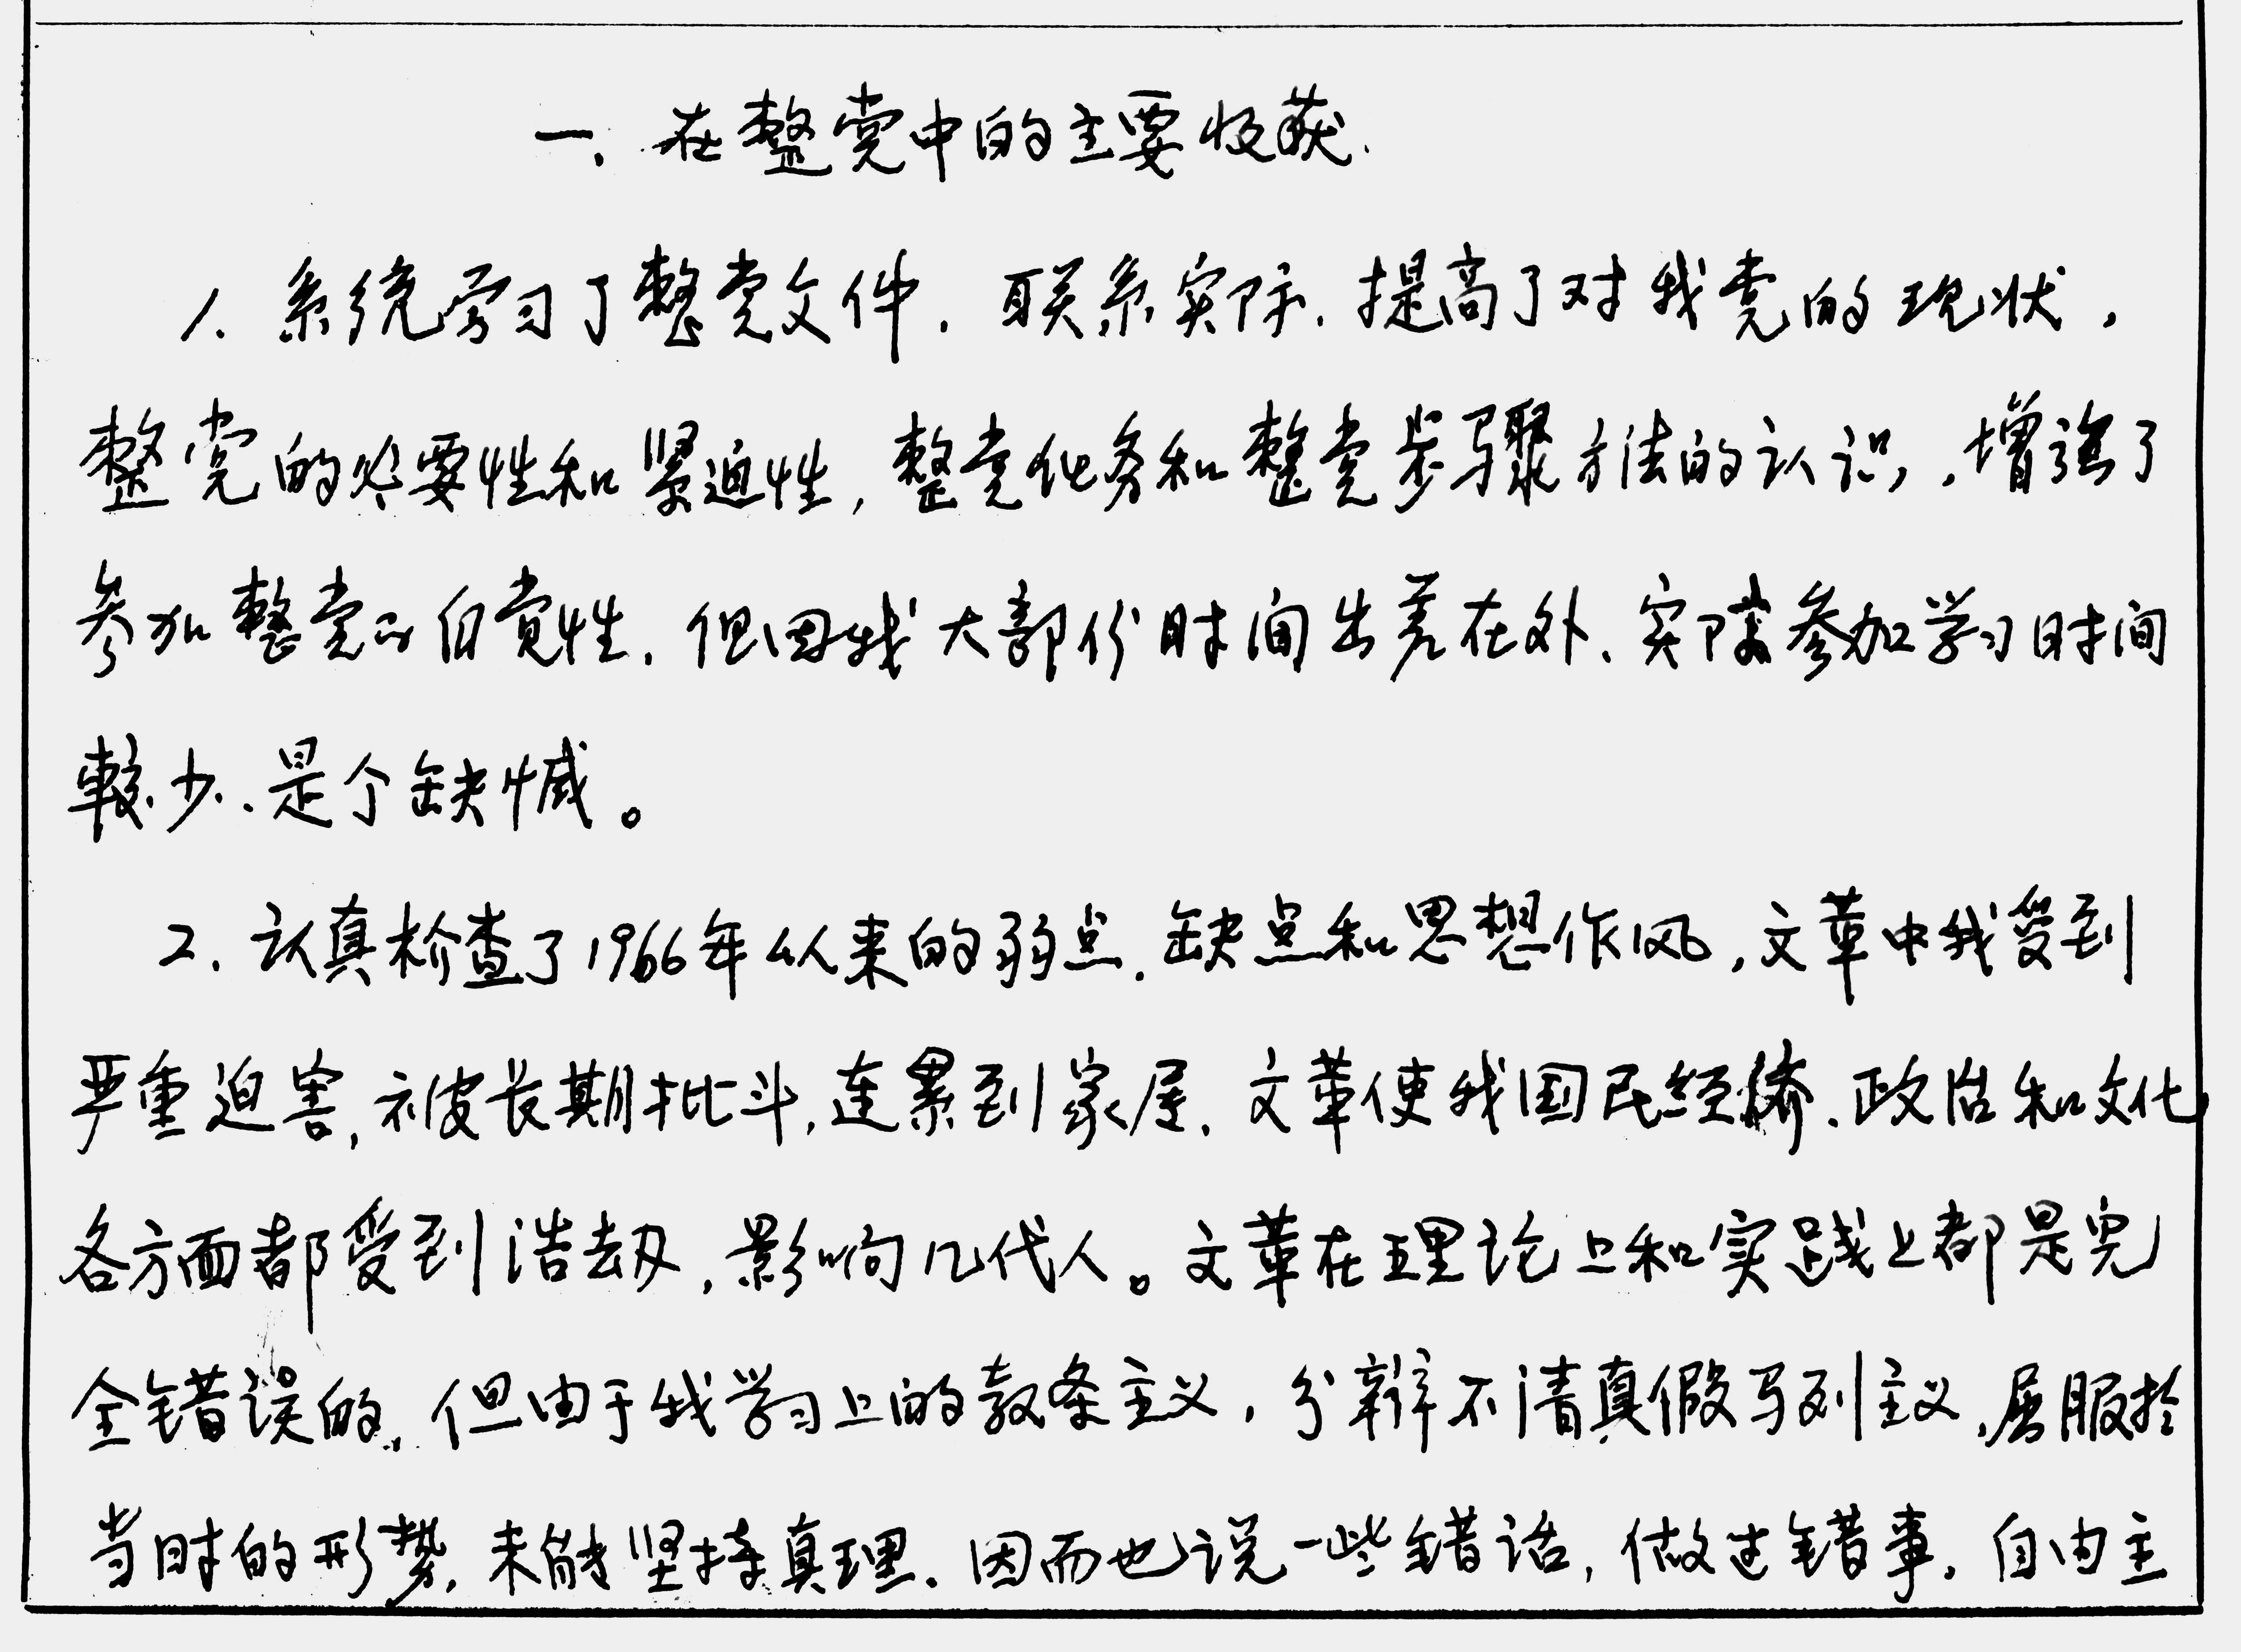 一、在整党中的主要收获.
1. 系统学习了整党文件，联系实际，提高了对我党的现状，
整党的必要性和紧迫性，整党任务和整党步骤方法的认识，增强了
参加整党的自觉性，但因我大部份时间出差在外、实际参加学习时间
较少、是个缺憾。
2. 认真检查了1966年以来的弱点、缺点和思想作风，文革中我受到
严重迫害，被长期批斗，连累到家属，文革使我国民经济、政治和文化
各方面都受到浩劫，影响几代人。文革在理论上和实践上都是完
全错误的，但由于我学习上的教条主义，分辩不清真假马列主义，屈服於
当时的形势，未能坚持真理、因而也说一些错话，做过错事，自由主